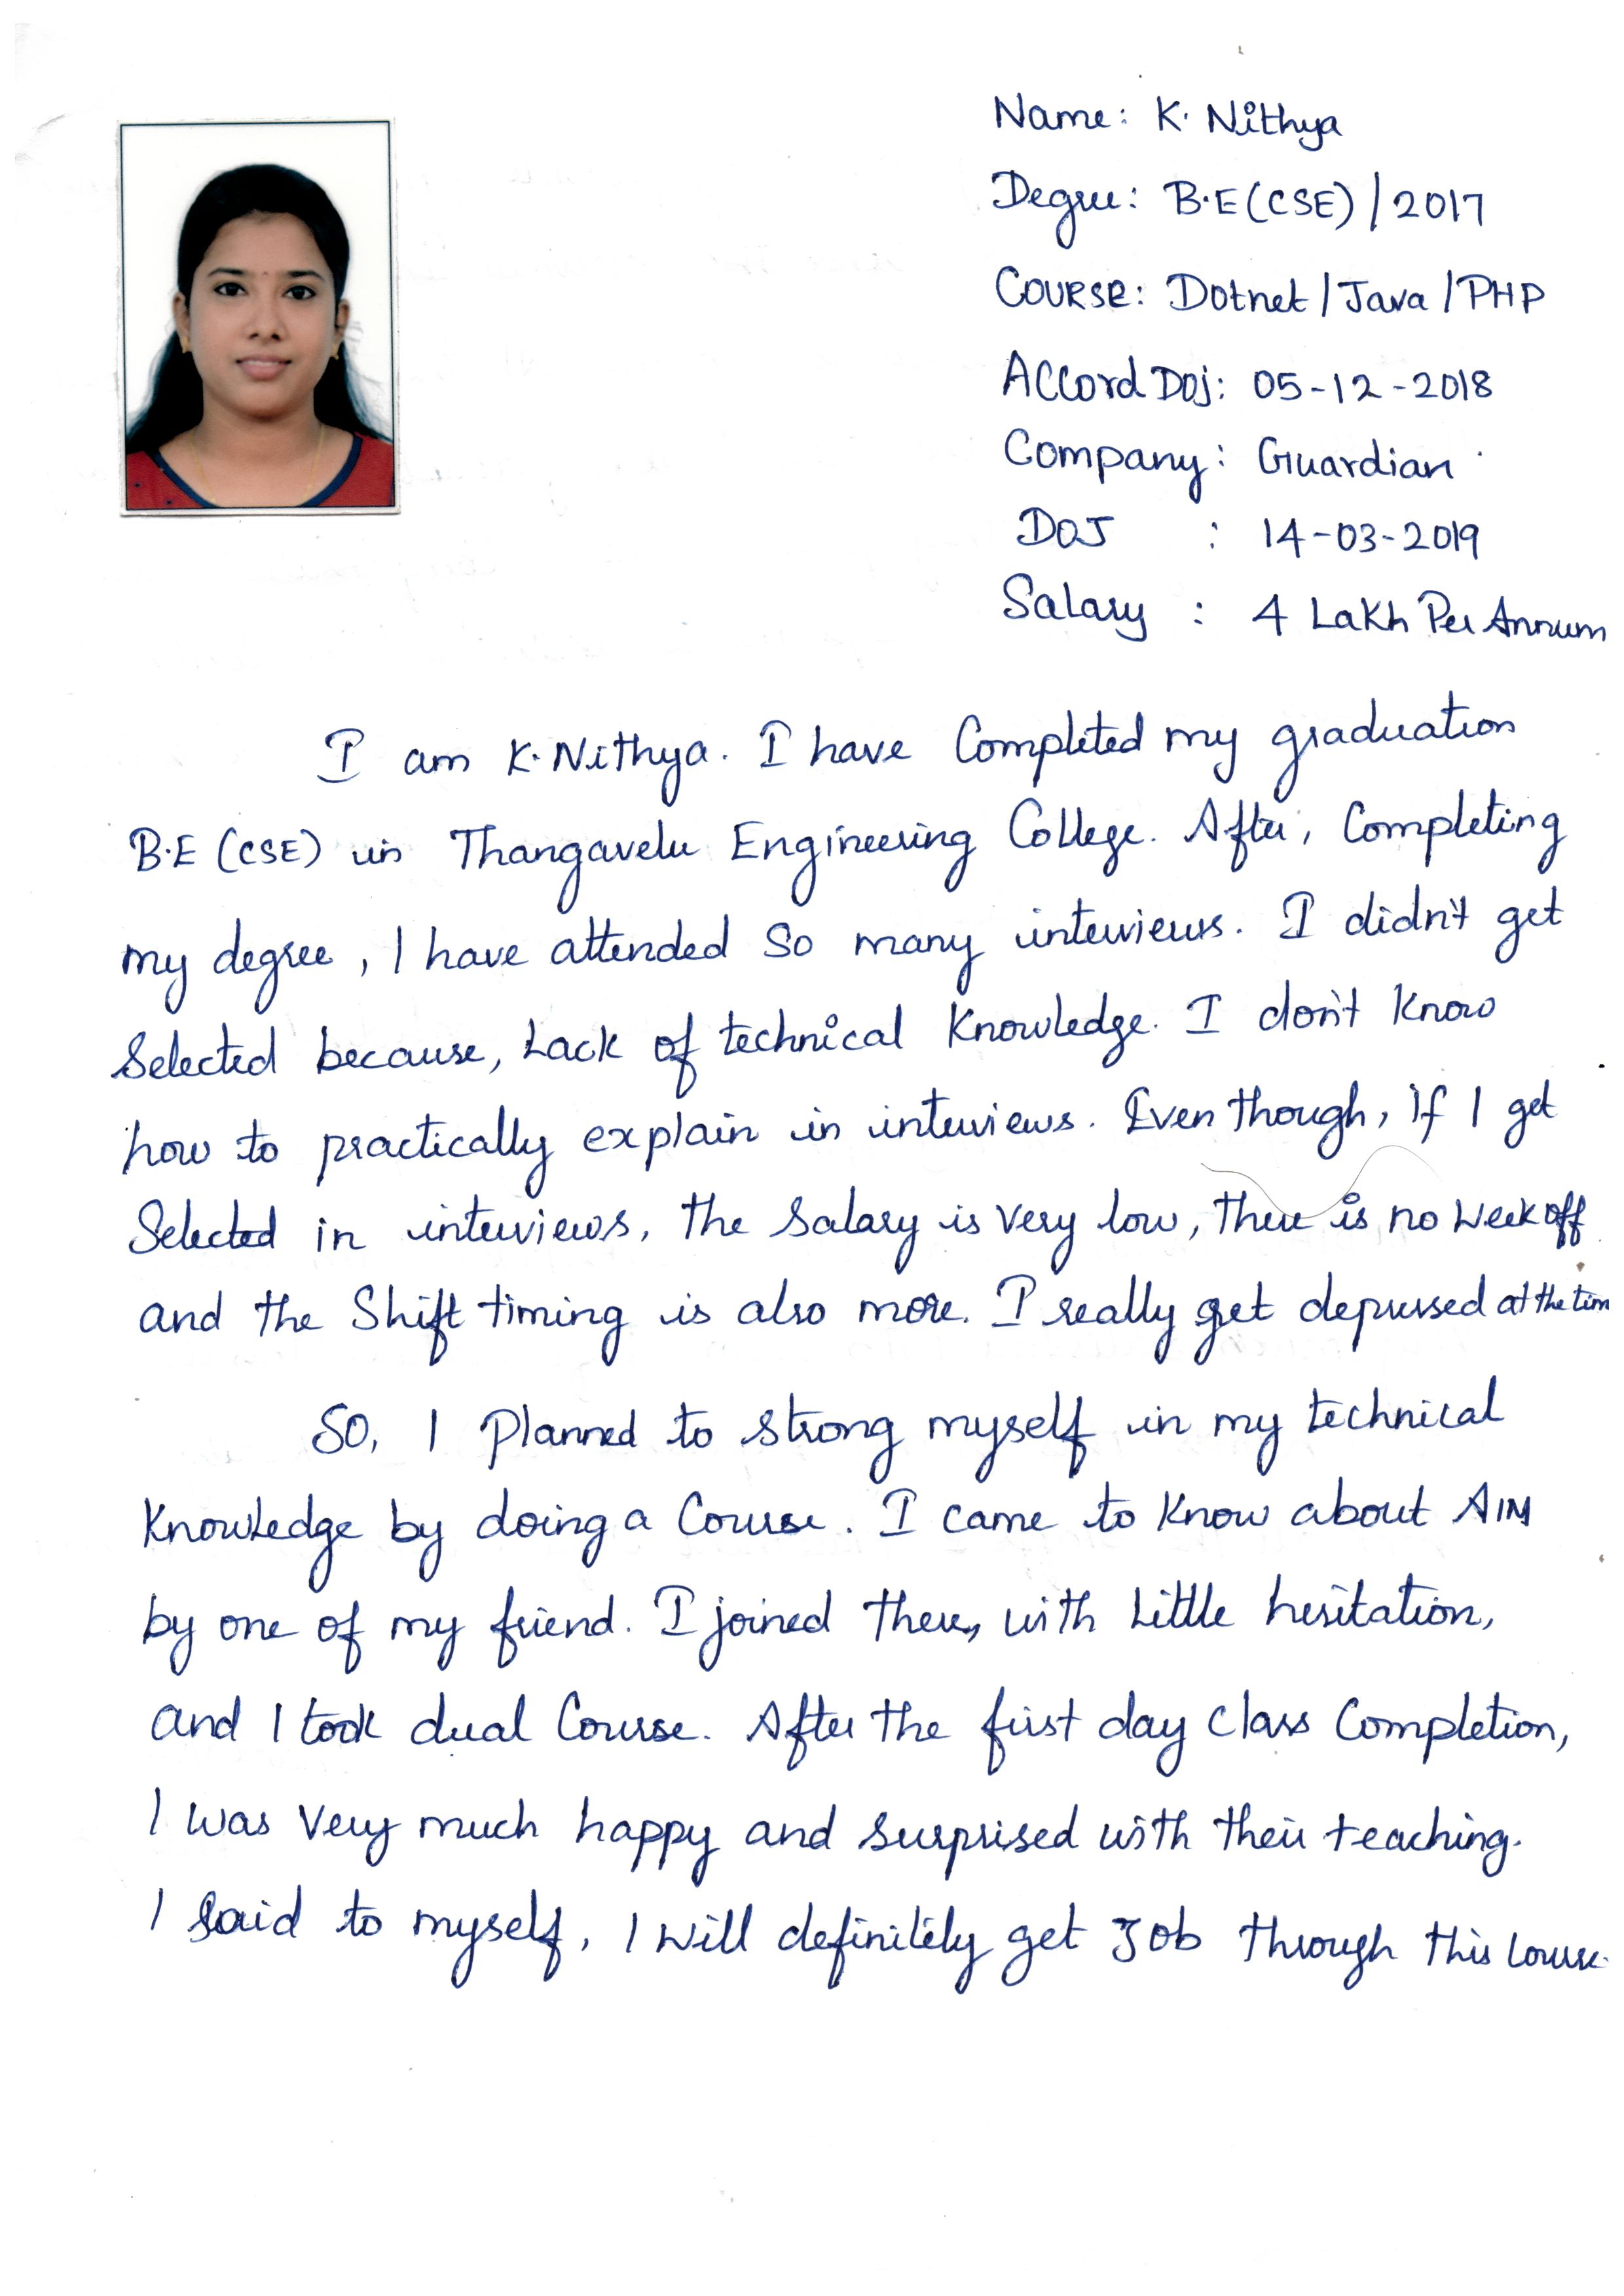 Name: K. Nithya
Degree: B.E (CSE) / 2017
COURSE: Dotnet / Java / PHP
Accord Doj: 05-12-2018
Company: Guardian
DOJ : 14-03-2019
Salary : 4 Lakh Per Annum
I am K. Nithya. I have Completed my graduation
B.E (CSE) in Thangavelu Engineering College. After, Completing
my degree, I have attended so many interviews. I didn't get
Selected because, Lack of technical Knowledge. I don't know
how to practically explain in interviews. Even though, if I get
Selected in interviews, the salary is very low, there is no week off
and the Shift timing is also more. I really get depressed at the tim
SO, I Planned to strong myself in my technical
Knowledge by doing a Course. I came to know about AIM
by one of my friend. I joined there, with little hesitation,
and I took dual Course. After the first day class Completion,
I was very much happy and surprised with their teaching.
I said to myself, I will definitely get Job through this course.